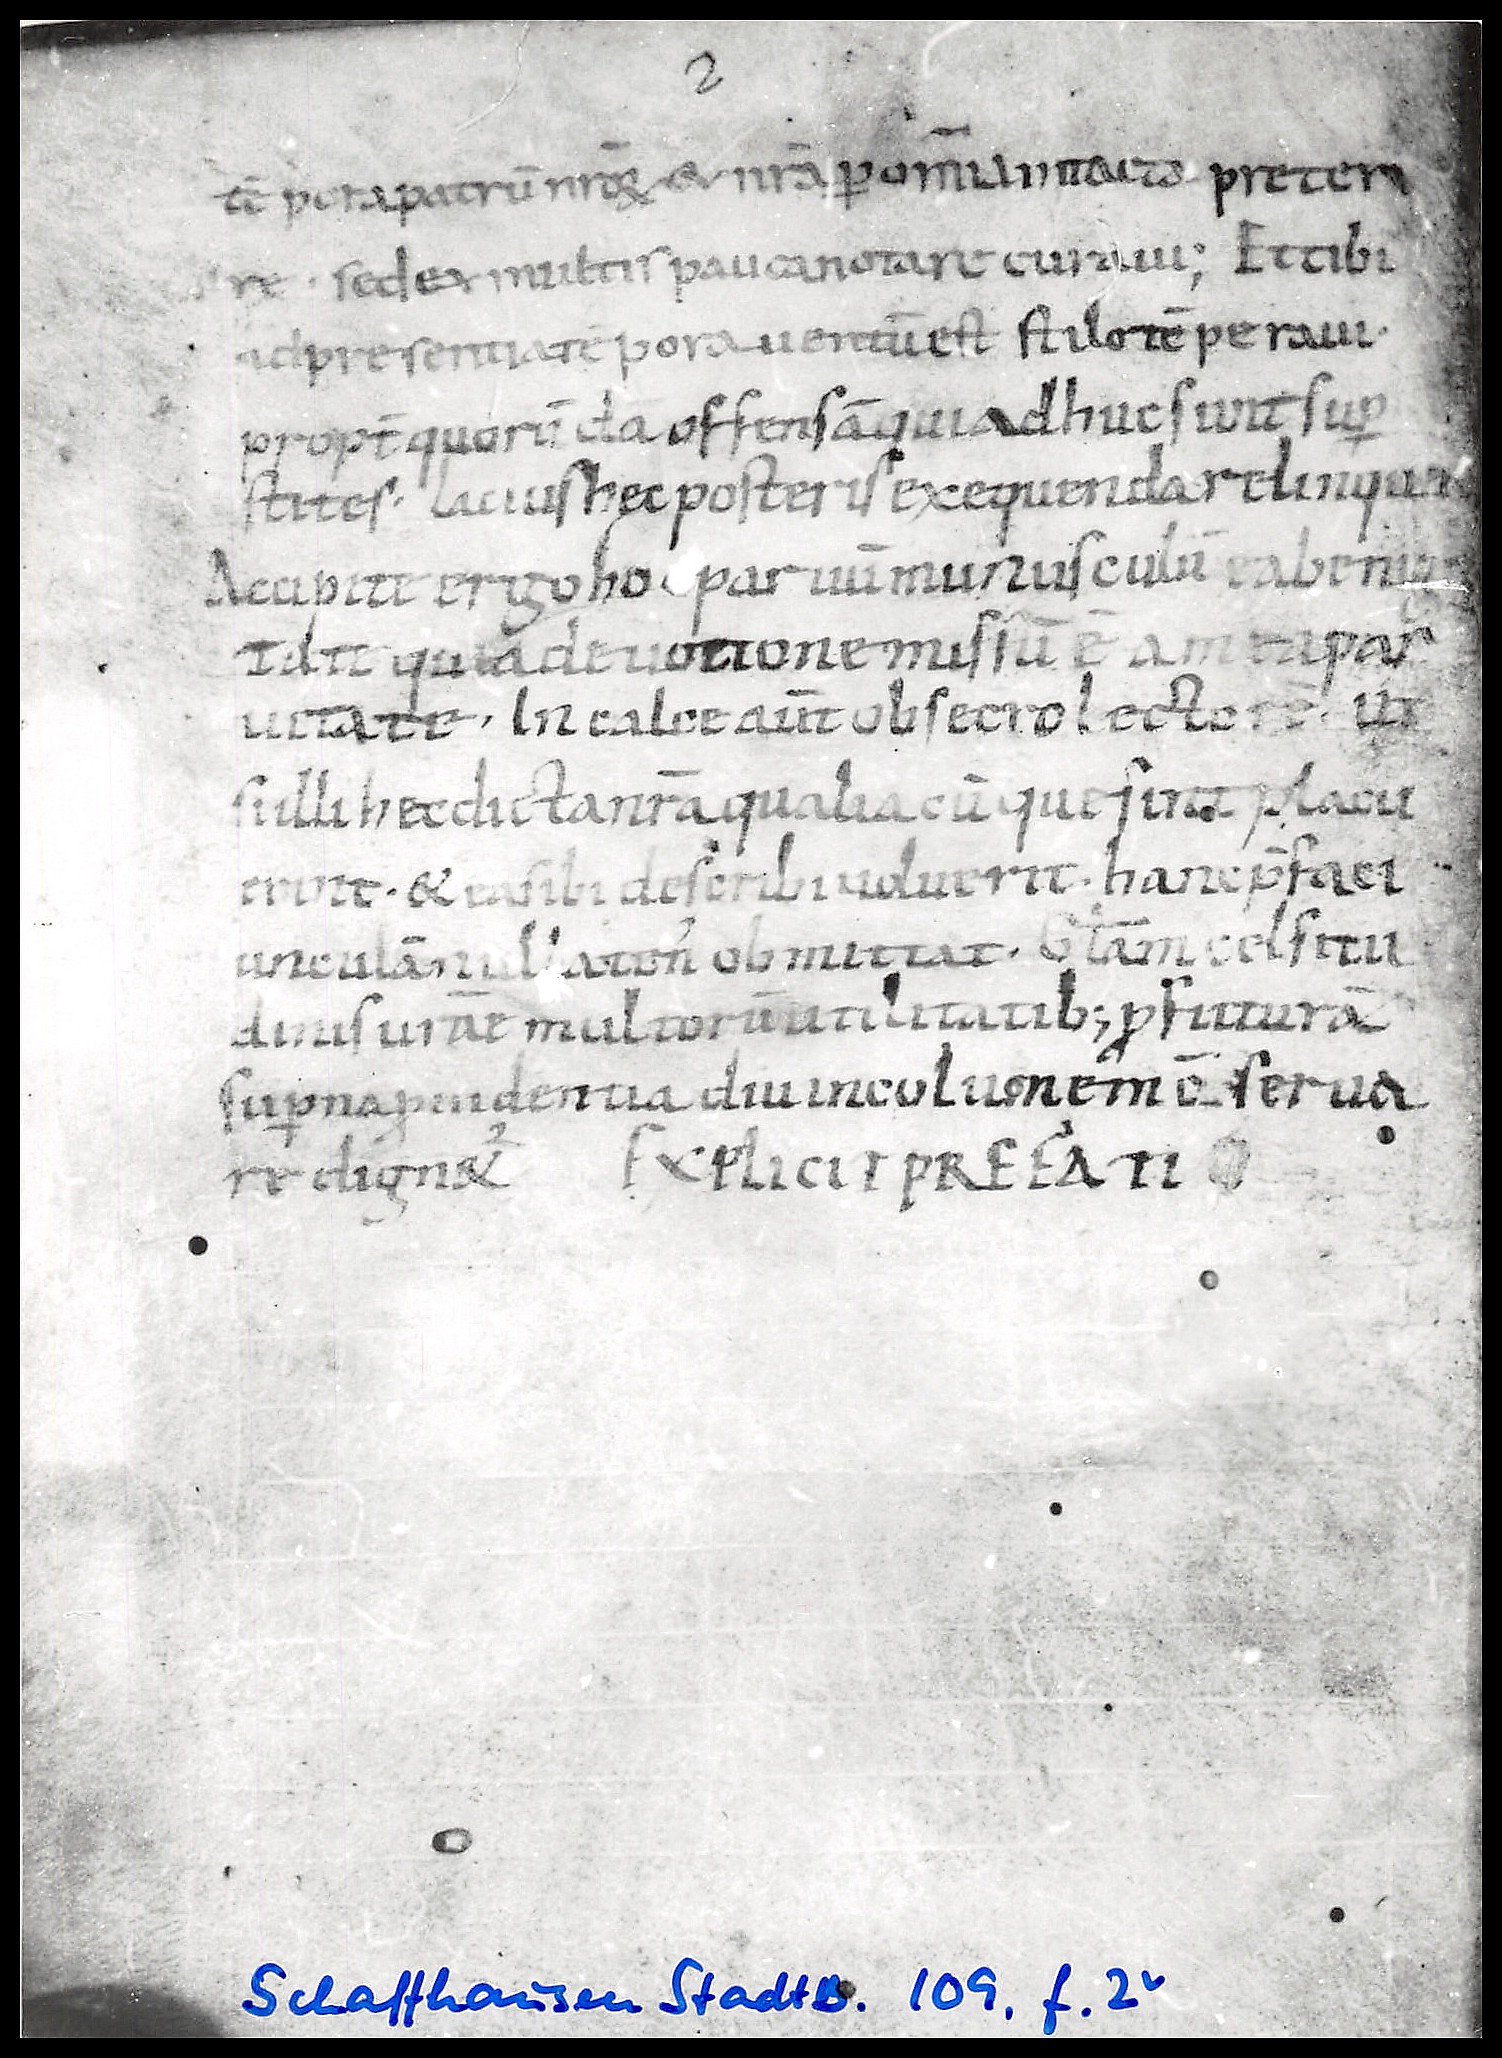 2
tē pora patrū nr̄oꝝ & nr̄a ꝑ om̄ia intacta preteri
re · sed ex multis pauca notare curaui; Et tibi
ad presentia tēpora uentū est stilo tēperaui·
propt̄ quorūdā offensā quia adhuc sunt suꝑ
stites· latius hec posteris exequenda relinquens
Accipite ergo hoc paruū munusculū ea benigni
tate quia deuotione missū ē a mea par
uitate· In calce aūt obsecro lectorē· ut
si illi hec dicta nr̄a qualiacūque sint placu
erint· & ea sibi describi uoluerit· hanc p̄faci
unculā nullaten' obmittat· Gl̄am celsitu
dinis ur̄ae multorū utilitatib; ꝓfuturā
suꝑna ꝓuidentia diu incolumem ē serua
re dignet᷑ EXPLICIT PREFATI
Schaffhausen StadtB. 109. f. 2v